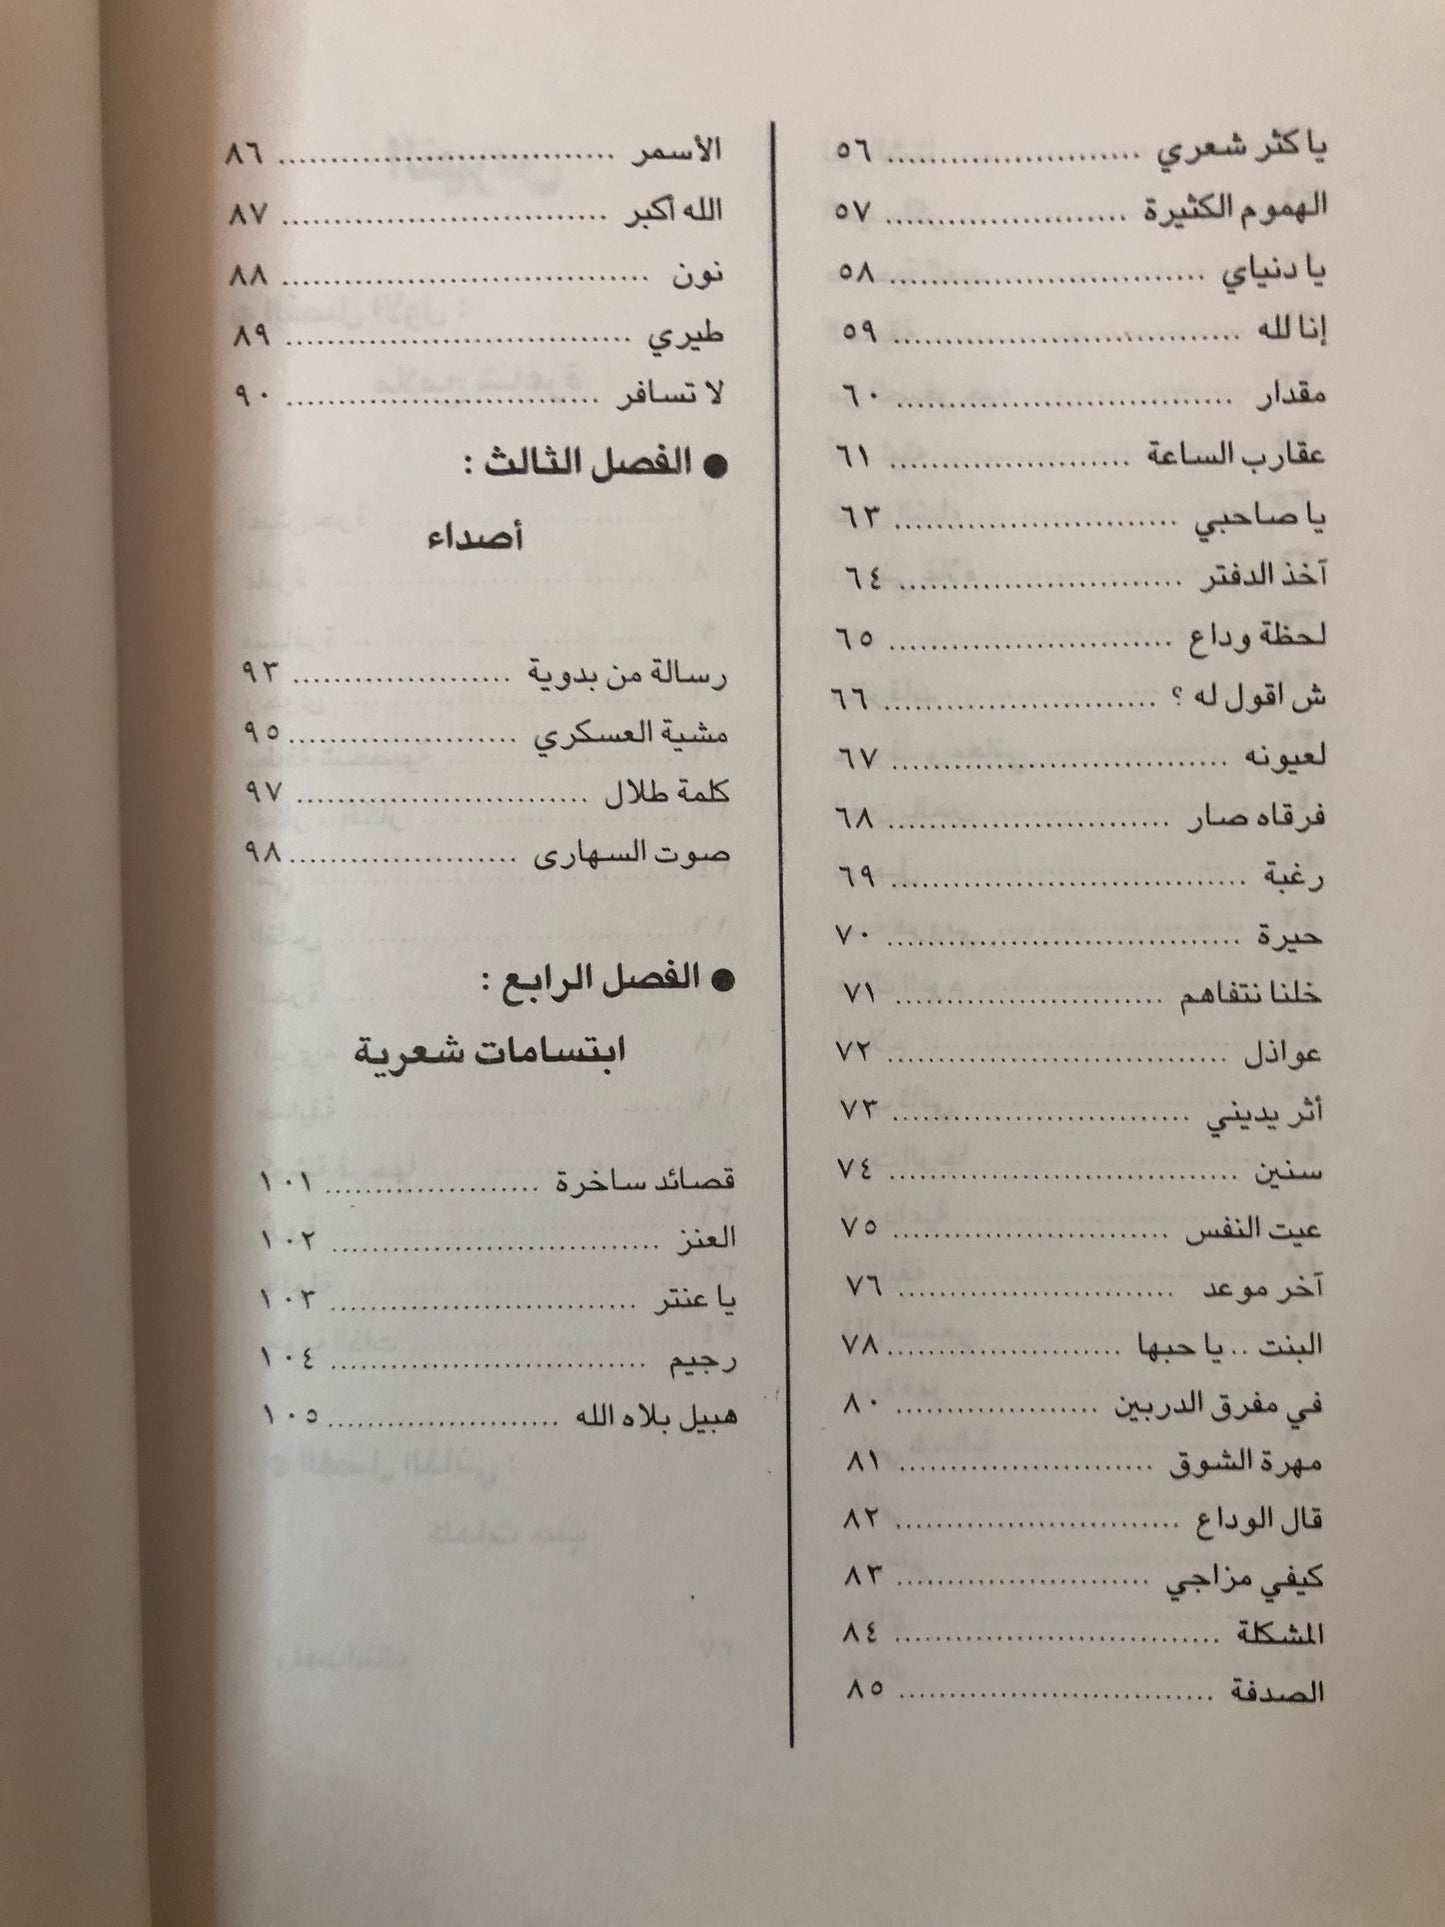 يا كثر شعري ........................ ٥٦
الهموم الكثيرة ....................... ٥٧
يا دنياي .............................. ٥٨
إنا لله ................................. ٥٩
مقدار ................................ ٦٠
عقارب الساعة ....................... ٦١
يا صاحبي ........................... ٦٣
آخذ الدفتر ........................... ٦٤
لحظة وداع ........................... ٦٥
ش اقول له ؟ .......................... ٦٦
لعيونه ................................ ٦٧
فرقاه صار ........................... ٦٨
رغبة .................................. ٦٩
حيرة .................................. ٧٠
خلنا نتفاهم .......................... ٧١
عواذل ................................ ٧٢
أثر يديني ............................ ٧٣
سنين ................................. ٧٤
عيت النفس .......................... ٧٥
آخر موعد ........................... ٧٦
البنت .. يا حبها ...................... ٧٨
في مفرق الدربين .................... ٨٠
مهرة الشوق ........................ ٨١
قال الوداع ........................... ٨٢
كيفي مزاجي ........................ ٨٣
المشكلة ............................... ٨٤
الصدفة .............................. ٨٥
الأسمر ................................ ٨٦
الله أكبر ............................... ٨٧
نون ................................... ٨٨
طيري ................................. ٨٩
لا تسافر .............................. ٩٠
● الفصل الثالث :
أصداء
رسالة من بدوية ..................... ٩٣
مشية العسكري ...................... ٩٥
كلمة طلال ............................ ٩٧
صوت السهارى ...................... ٩٨
● الفصل الرابع :
ابتسامات شعرية
قصائد ساخرة ..................... ١٠١
العنز ................................ ١٠٢
يا عنتر ............................. ١٠٣
رجيم ............................... ١٠٤
هبيل بلاه الله ...................... ١٠٥